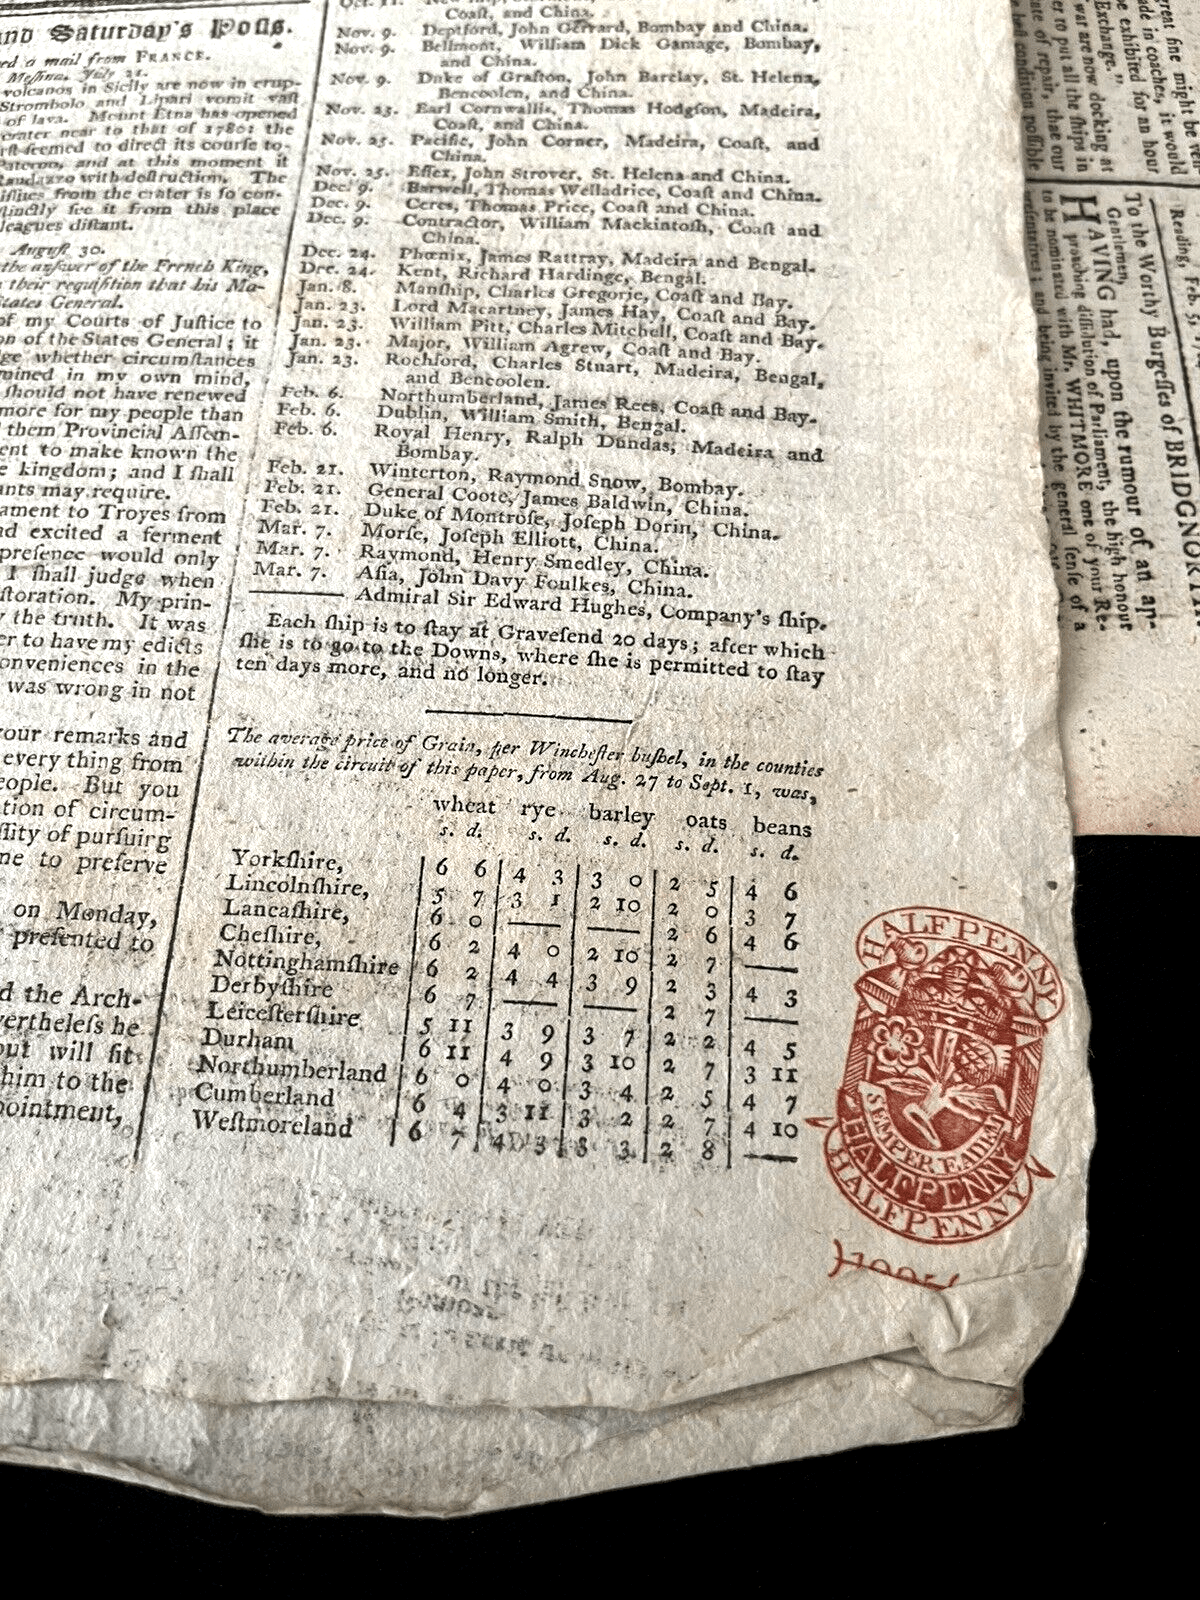 and Saturday's Posts.
ed a mail from FRANCE.
Messina, July 21.
volcanos in Sicily are now in erup-
Strombolo and Lipari vomit vast
of lava. Mount Etna has opened
crater near to that of 1780: the
rst seemed to direct its course to-
Paterno, and at this moment it
Randazzo with destruction. The
issues from the crater is so con-
stinctly see it from this place
leagues distant.
August 30.
the answer of the French King,
their requisition that his Ma-
States General.
of my Courts of Justice to
on of the States General; it
ge whether circumstances
mined in my own mind,
should not have renewed
more for my people than
them Provincial Assem-
ent to make known the
e kingdom; and I shall
ants may require.
ament to Troyes from
ad excited a ferment
presence would only
I shall judge when
storation. My prin-
y the truth. It was
er to have my edicts
onveniences in the
was wrong in not
your remarks and
every thing from
eople. But you
tion of circum-
ssity of pursuirg
me to preserve
on Monday,
presented to
d the Arch-
vertheless he
out will sit
him to the
pointment,
Coast, and China.
Nov. 9. Deptford, John Gerrard, Bombay and China.
Nov. 9. Bellmont, William Dick Gamage, Bombay,
and China.
Nov. 9. Duke of Grafton, John Barclay, St. Helena,
Bencoolen, and China.
Nov. 23. Earl Cornwallis, Thomas Hodgson, Madeira,
Coast, and China.
Nov. 25. Pacific, John Corner, Madeira, Coast, and
China.
Nov. 25. Essex, John Strover, St. Helena and China.
Dec. 9. Barwell, Thomas Welladrice, Coast and China.
Dec. 9. Ceres, Thomas Price, Coast and China.
Dec. 9. Contractor, William Mackintosh, Coast and
China.
Dec. 24. Phœnix, James Rattray, Madeira and Bengal.
Dec. 24. Kent, Richard Hardinge, Bengal.
Jan. 8. Manship, Charles Gregorie, Coast and Bay.
Jan. 23. Lord Macartney, James Hay, Coast and Bay.
Jan. 23. William Pitt, Charles Mitchell, Coast and Bay.
Jan. 23. Major, William Agrew, Coast and Bay.
Jan. 23. Rochford, Charles Stuart, Madeira, Bengal,
and Bencoolen.
Feb. 6. Northumberland, James Rees, Coast and Bay.
Feb. 6. Dublin, William Smith, Bengal.
Feb. 6. Royal Henry, Ralph Dundas, Madeira and
Bombay.
Feb. 21. Winterton, Raymond Snow, Bombay.
Feb. 21. General Coote, James Baldwin, China.
Feb. 21. Duke of Montrose, Joseph Dorin, China.
Mar. 7. Morse, Joseph Elliott, China.
Mar. 7. Raymond, Henry Smedley, China.
Mar. 7. Asia, John Davy Foulkes, China.
Admiral Sir Edward Hughes, Company's ship.
Each ship is to stay at Gravesend 20 days; after which
she is to go to the Downs, where she is permitted to stay
ten days more, and no longer.
The average price of Grain, per Winchester bushel, in the counties
within the circuit of this paper, from Aug. 27 to Sept. 1, was,
wheat rye barley oats beans
s. d. s. d. s. d. s. d. s. d.
Yorkshire, 6 6 4 3 3 0 2 5 4 6
Lincolnshire, 5 7 3 1 2 10 2 0 3 7
Lancashire, 6 0 — — 2 6 4 6
Cheshire, 6 2 4 0 2 10 2 7 —
Nottinghamshire 6 2 4 4 3 9 2 3 4 3
Derbyshire 6 7 — — 2 7 —
Leicestershire 5 11 3 9 3 7 2 2 4 5
Durham 6 11 4 9 3 10 2 7 3 11
Northumberland 6 0 4 0 3 4 2 5 4 7
Cumberland 6 4 3 11 3 2 2 7 4 10
Westmoreland 6 7 4 3 3 3 2 8 —
HALFPENNY
SEMPER EADEM
HALFPENNY
HALFPENNY
great fine might
ade in coaches, it would
be exhibited for an hour
Exchange."
war are now docking at
er to put all the ships in
ate of repair, that our
best condition possible
Reading, Feb. 5
To the Worthy Burgesses of BRIDGNORTH.
Gentlemen,
HAVING had, upon the rumour of an ap-
proaching dissolution of Parliament, the high honour
to be nominated with Mr. WHITMORE one of your Re-
presentatives; and being invited by the general sense of a